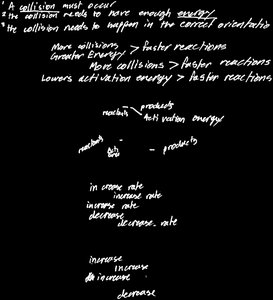 1 A collision must occur
2 the collision needs to have enough energy
3 the collision needs to happen in the correct orientatio
More collisions > faster reactions
Greater Energy
More collisions > faster reactions
Lowers activation energy > faster reactions
reactants products
Activation energy
reactants products
increase rate
increase rate
increase rate
decrease
decrease rate
increase
increase
increase
decrease